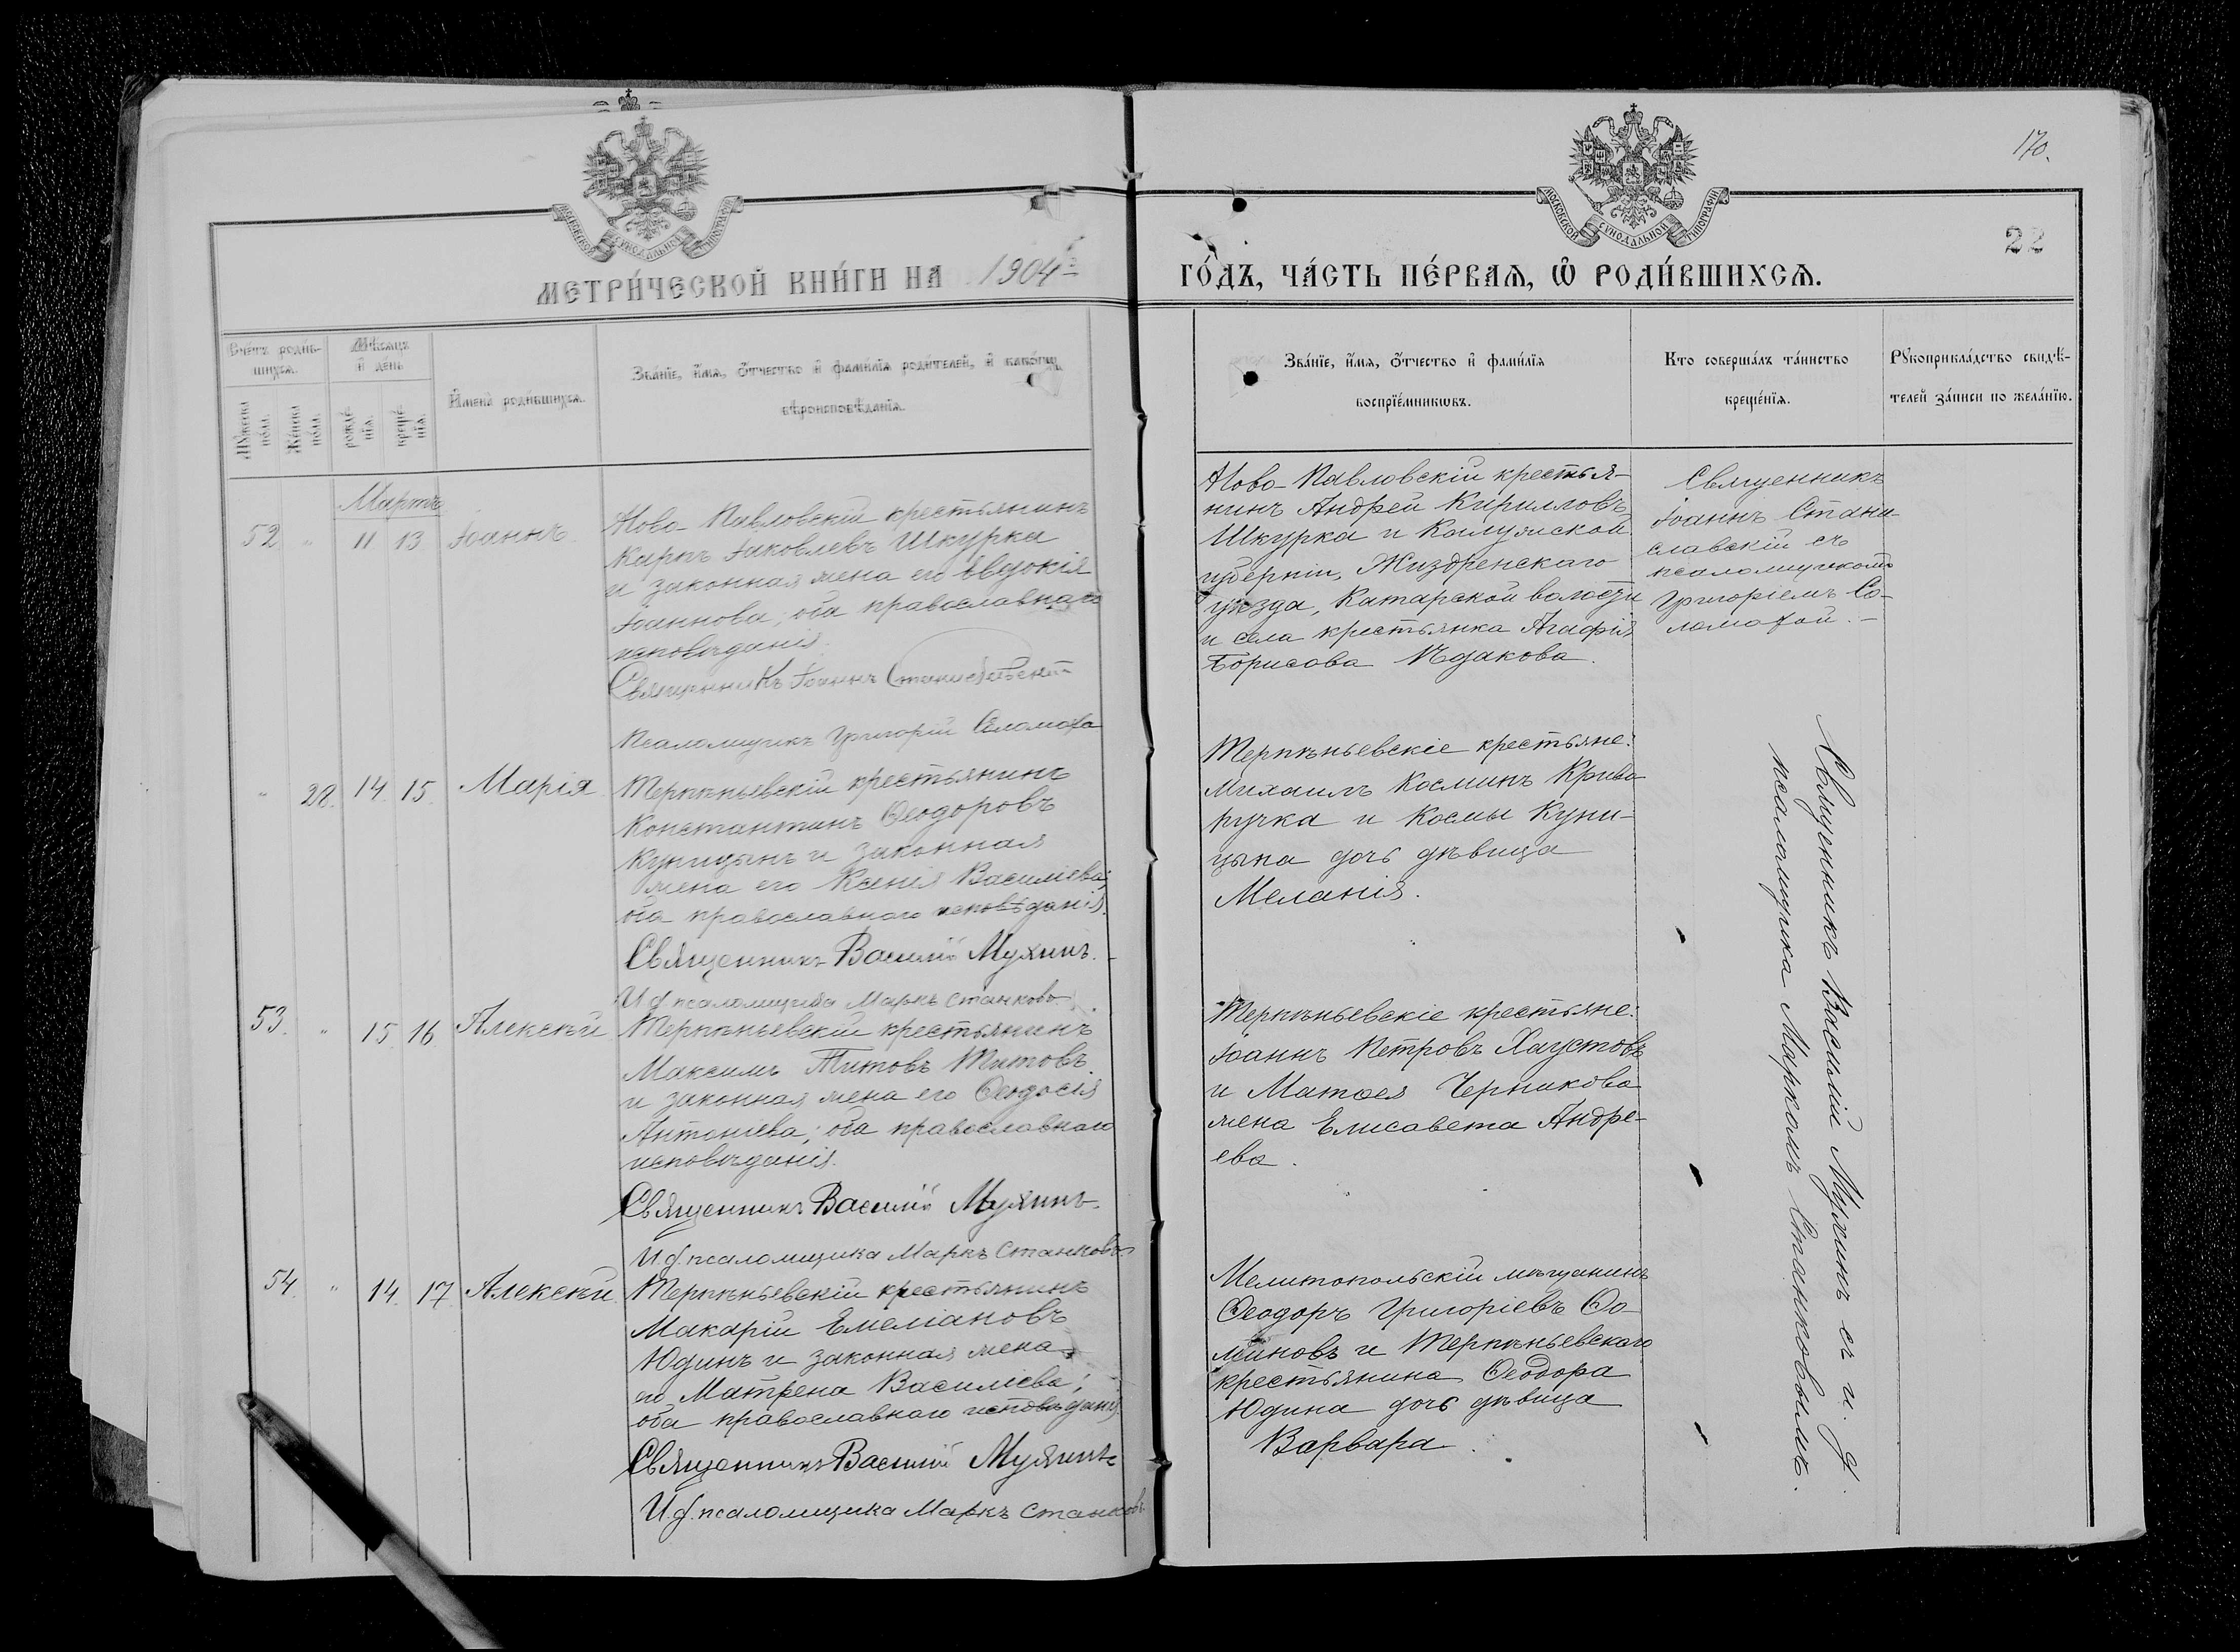 170.
22
МОСКОВСКОЙ СѴНОДАЛЬНОЙ ТИПОГРАФІИ
МОСКОВСКОЙ СѴНОДАЛЬНОЙ ТИПОГРАФІИ
МЕТРИ́ЧЕСКОЙ КНИ́ГИ НА 1904й
ГО́ДЪ, ЧА́СТЬ ПЕ́РВАѦ, Ѡ҆ РОДИ́ВШИХСѦ.
Сче́тъ роди́в-
шихсѧ.
Мꙋ́жеска по́ла.
Же́нска по́ла.
Мѣ́сѧцъ
и҆ де́нь
рожде́-
нїѧ.
креще́-
нїѧ.
И҆мена̀ роди́вшихсѧ.
Зва́нїе, и҆́мѧ, ѻ҆́тчество и҆ фами́лїѧ роди́телей, и҆ како́гѡ
вѣроисповѣ́данїѧ.
Зва́нїе, и҆́мѧ, ѻ҆́тчество и҆ фами́лїѧ
воспрїе́мникѡвъ.
Кто̀ соверша́лъ та́инство
креще́нїѧ.
Рꙋкоприкла́дство свидѣ́-
телей за́писи по жела́нїю.
Мартъ
52 " 11 13 Іоаннъ.
Ново-Павловскій крестьянинъ
Карпъ Іаковлевъ Шкурка
и законная жена его Евдокія
Іоаннова; оба православнаго
исповѣданія.
Священникъ Іоаннъ Станиславскій
Псаломщикъ Григорій Соломаха
Ново-Павловскій крестья-
нинъ Андрей Кирилловъ
Шкурка и Калужской
губерніи, Жиздренскаго
уѣзда, Катарской волости
и села крестьянка Агафія
Борисова
Священникъ
Іоаннъ Стани-
славскій съ
псаломщикомъ
Григоріемъ Со-
ломахой.-
" 28. 14. 15. Марія
Терпѣньевскій крестьянинъ
Константинъ Ѳеодоровъ
Куницынъ и законная
жена его Ксенія Василіева;
оба православнаго исповѣданія.
Священникъ Василій Мухинъ.
И. д. псаломщика Маркъ Станково
Терпѣньевскіе крестьяне:
Михаилъ Косминъ Криво
ручка и Космы Куни-
цына дочь дѣвица
Меланія.
53. " 15. 16. Алексѣй
Терпѣньевскій крестьянинъ
Максимъ Титовъ Титовъ
и законная жена его Ѳеодосія
Антоніева; оба православнаго
исповѣданія.
Священникъ Василій Мухинъ.
И. д. псаломщика Маркъ Станковъ
Терпѣньевскіе крестьяне:
Іоаннъ Петровъ Хаустовъ
и Матѳея Черникова
жена Елисавета Андре-
ева.
54. " 14. 17. Алексѣй
Терпѣньевскій крестьянинъ
Макарій Емеліановъ
Юдинъ и законная жена
его Матрена Василіева;
оба православнаго исповѣданія.
Священникъ Василій Мухинъ
И. д. псаломщика Маркъ Станков.
Мелитопольскій мѣщанинъ
Ѳеодоръ Григоріевъ Ѳо-
миновъ и Терпѣньевскаго
крестьянина Ѳеодора
Юдина дочь дѣвица
Варвара.
Священникъ Василій Мухинъ съ и. д.
псаломщика Маркомъ Станковымъ.